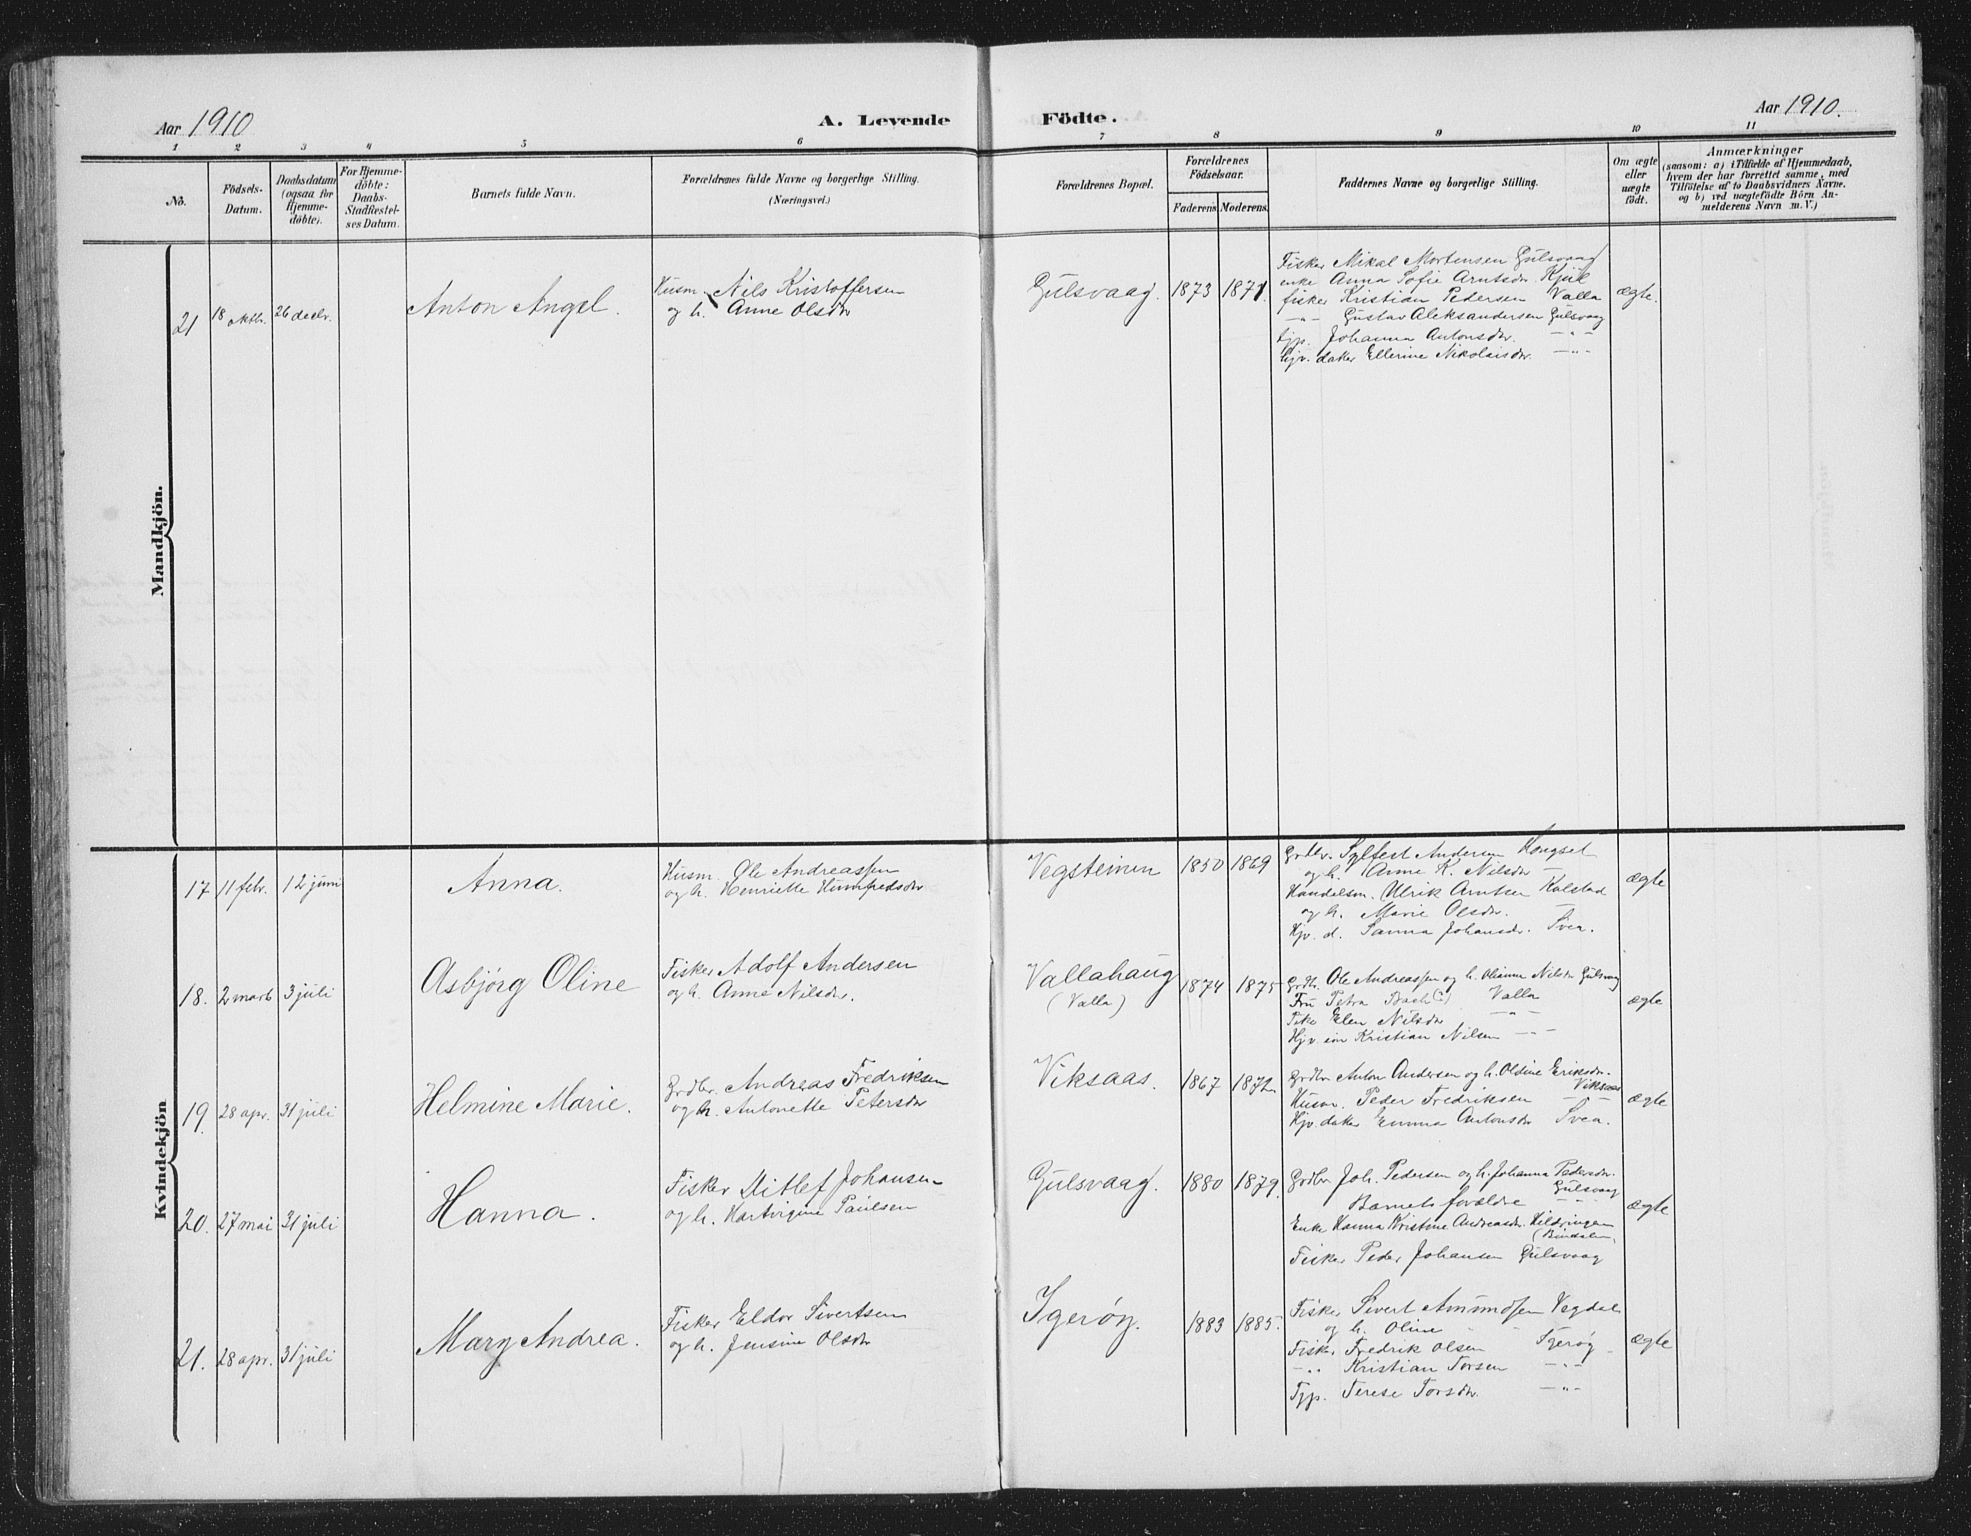 Aar 1910
A. Levende Födte.
Aar 1910.
1 2 3 4 5 6 7 8 9 10 11
No.
Födsels-Datum.
Daabsdatum (ogsaa for Hjemme-döbte).
For Hjemme-döbte: Daabs-Stadfestel-ses Datum.
Barnets fulde Navn.
Forældrenes fulde Navne og borgerlige Stilling.
(Næringsvei.)
Forældrenes Bopæl.
Forældrenes Födselsaar.
Faderens
Moderens.
Faddernes Navne og borgerlige Stilling.
Om ægte eller uægte født.
Anmærkninger
(saasom: a) i Tilfælde af Hjemmedaab,
hvem der har forrettet samme, med
Tilföielse af to Daabsvidners Navne.
og b) ved uægtefödte Börn An-
melderens Navn m. V.)
Mandkjön.
21 18 oktb. 26 decbr. Anton Angel. Husm. Nils Kristoffersen
og h. Anne Olsdtr
Gulsvaag. 1873 1871.
Fisker Mikal Mortensen Gulsvaag
enke Anna Sofie Arntsdr. Kjul
fisker Kristian Pedersen Valla
—"— Gustav Aleksandersen Gulsvaag
tjp. Johanna Antonsdr. —"—
hjv. datter Ellerine Nikolaisdr. —"—
ægte.
Kvindekjön
17 11 febr. 12 juni Anna. Husm. Ole Andreassen
og h. Henriette Humfredsdr
Vegsteinen 1850 1869
Grdbr. Sylfest Andersen Kongset
og h. Anne K. Nilsdr —
Handelsm. Ulrik Arntsen Kolstad
og h. Marie Olsdr.
Hjv. d. Sanna Johansdr. Svea.
ægte
18. 2 marts 3 juli Asbjörg Oline Fisker Adolf Andersen
og h. Anne Nilsdr.
Vallahaug
(Valla)
1874 1875
Grdb. Ole Andreassen og h. Olianna Nilsdr Gulsvaag
Fru Petra Bach (:) Valla
Pike Elen Nilsdr —"—
Hjv. søn Kristian Nilsen —"—
ægte
19. 28 apr. 31 juli Helmine Marie. Grdbr. Andreas Fredriksen
og h. Antonette Petersdr
Viksaas. 1867 1872
Grdbr Anton Andersen og h. Oldine Eriksdr.
Viksaas
Husm. Peder Fredriksen —"—
Hjv. datter Emma Antonsdr Svea.
ægte
20. 27 mai 31 juli Hanna. Fisker Ditlef Johansen
og h. Hartvigine Paulsen
Gulsvaag. 1880 1879.
Grdbr Joh. Pedersen og h. Johanna Pedersdr.
Gulsvaag
Barnets forældre —"—
Enke Hanna Kristine Andreasdr. Hildringen
(Bindalen)
Fisker Peder Johansen Gulsvaag
ægte
21. 28 apr. 31 juli Mary Andrea. Fisker Eldor Sivertsen
og h. Jensine Olsdr
Igerøy. 1883 1885.
Fisker Sivert Amundsen Vegdal
og h. Oline
Fisker Fredrik Olsen Igerøy
—"— Kristian Torsen —"—
Tjp. Terese Torsdr. —"—
ægte